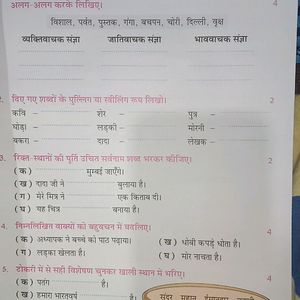 अलग-अलग करके लिखिए। 4
विशाल, पर्वत, पुस्तक, गंगा, बचपन, चोरी, दिल्ली, वृक्ष
व्यक्तिवाचक संज्ञा जातिवाचक संज्ञा भाववाचक संज्ञा
2. दिए गए शब्दों के पुल्लिंग या स्त्रीलिंग रूप लिखो। 2
कवि – शेर – पुत्र –
घोड़ा – लड़की – मोरनी –
बकरा – दादा – लेखक –
3. रिक्त-स्थानों की पूर्ति उचित सर्वनाम शब्द भरकर कीजिए। 2
( क ) मुम्बई जाएँगे।
( ख ) दादा जी ने बुलाया है।
( ग ) मेरे मित्र ने एक किताब दी।
( घ ) यह चित्र बनाया है।
4. निम्नलिखित वाक्यों को बहुवचन में बदलिए। 4
( क ) अध्यापक ने बच्चे को पाठ पढ़ाया। ( ख ) धोबी कपड़े धोता है।
( ग ) लड़का खेलता है। ( घ ) मोर नाचता है।
5. टोकरी में से सही विशेषण चुनकर खाली स्थान में भरिए। 4
( क ) पतंग है।
( ख ) हमारा भारतवर्ष है।
सुंदर महान